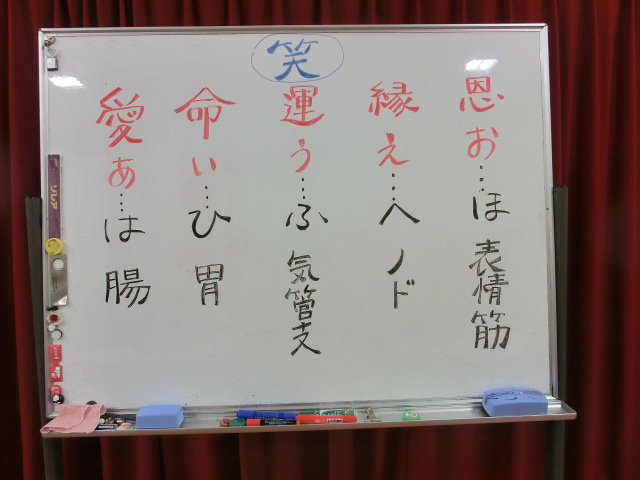 笑
恩お…ほ 表情筋
縁え…へ ノド
運う…ふ 気管支
命い…ひ 胃
愛あ…は 腸